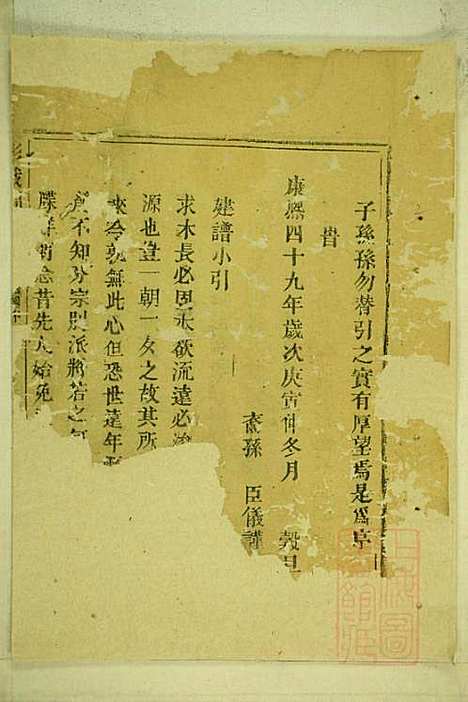 子孫孫勿替引之實有厚望焉是為序
旹
康熙四十九年歲次庚寅仲冬月 穀旦
裔孫 臣儀謹
建譜小引
求木長必固 欲流遠必
源也豈一朝一夕之故其所
來 孰無此心但恐世遠年
不知分宗別派將若之
牒 念昔先人始